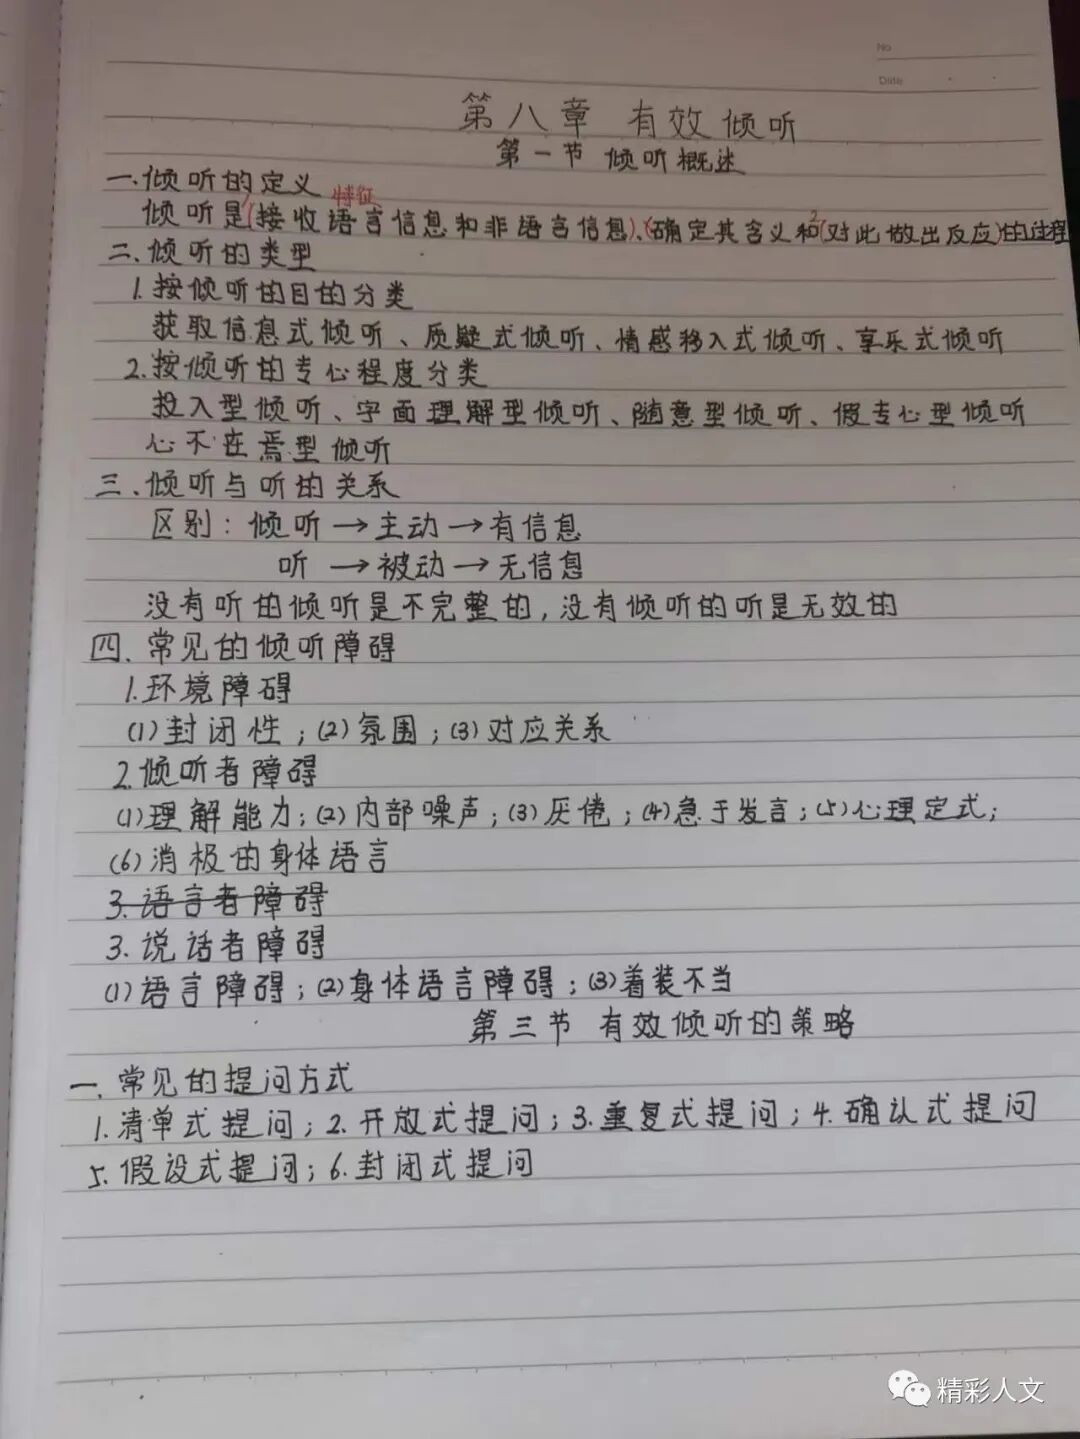 No
Date
第八章 有效倾听
第一节 倾听概述
一.倾听的定义
特征
倾听是(接收语言信息和非语言信息)、(确定其含义和(对此做出反应)的过程
二.倾听的类型
1.按倾听的目的分类
获取信息式倾听、质疑式倾听、情感移入式倾听、享乐式倾听
2.按倾听的专心程度分类
投入型倾听、字面理解型倾听、随意型倾听、假专心型倾听
心不在焉型倾听
三.倾听与听的关系
区别：倾听→主动→有信息
听→被动→无信息
没有听的倾听是不完整的,没有倾听的听是无效的
四.常见的倾听障碍
1.环境障碍
(1)封闭性；(2)氛围；(3)对应关系
2.倾听者障碍
(1)理解能力；(2)内部噪声；(3)厌倦；(4)急于发言；(5)心理定式；
(6)消极的身体语言
3.语言者障碍
3.说话者障碍
(1)语言障碍；(2)身体语言障碍；(3)着装不当
第三节 有效倾听的策略
一.常见的提问方式
1.清单式提问；2.开放式提问；3.重复式提问；4.确认式提问
5.假设式提问；6.封闭式提问
精彩人文